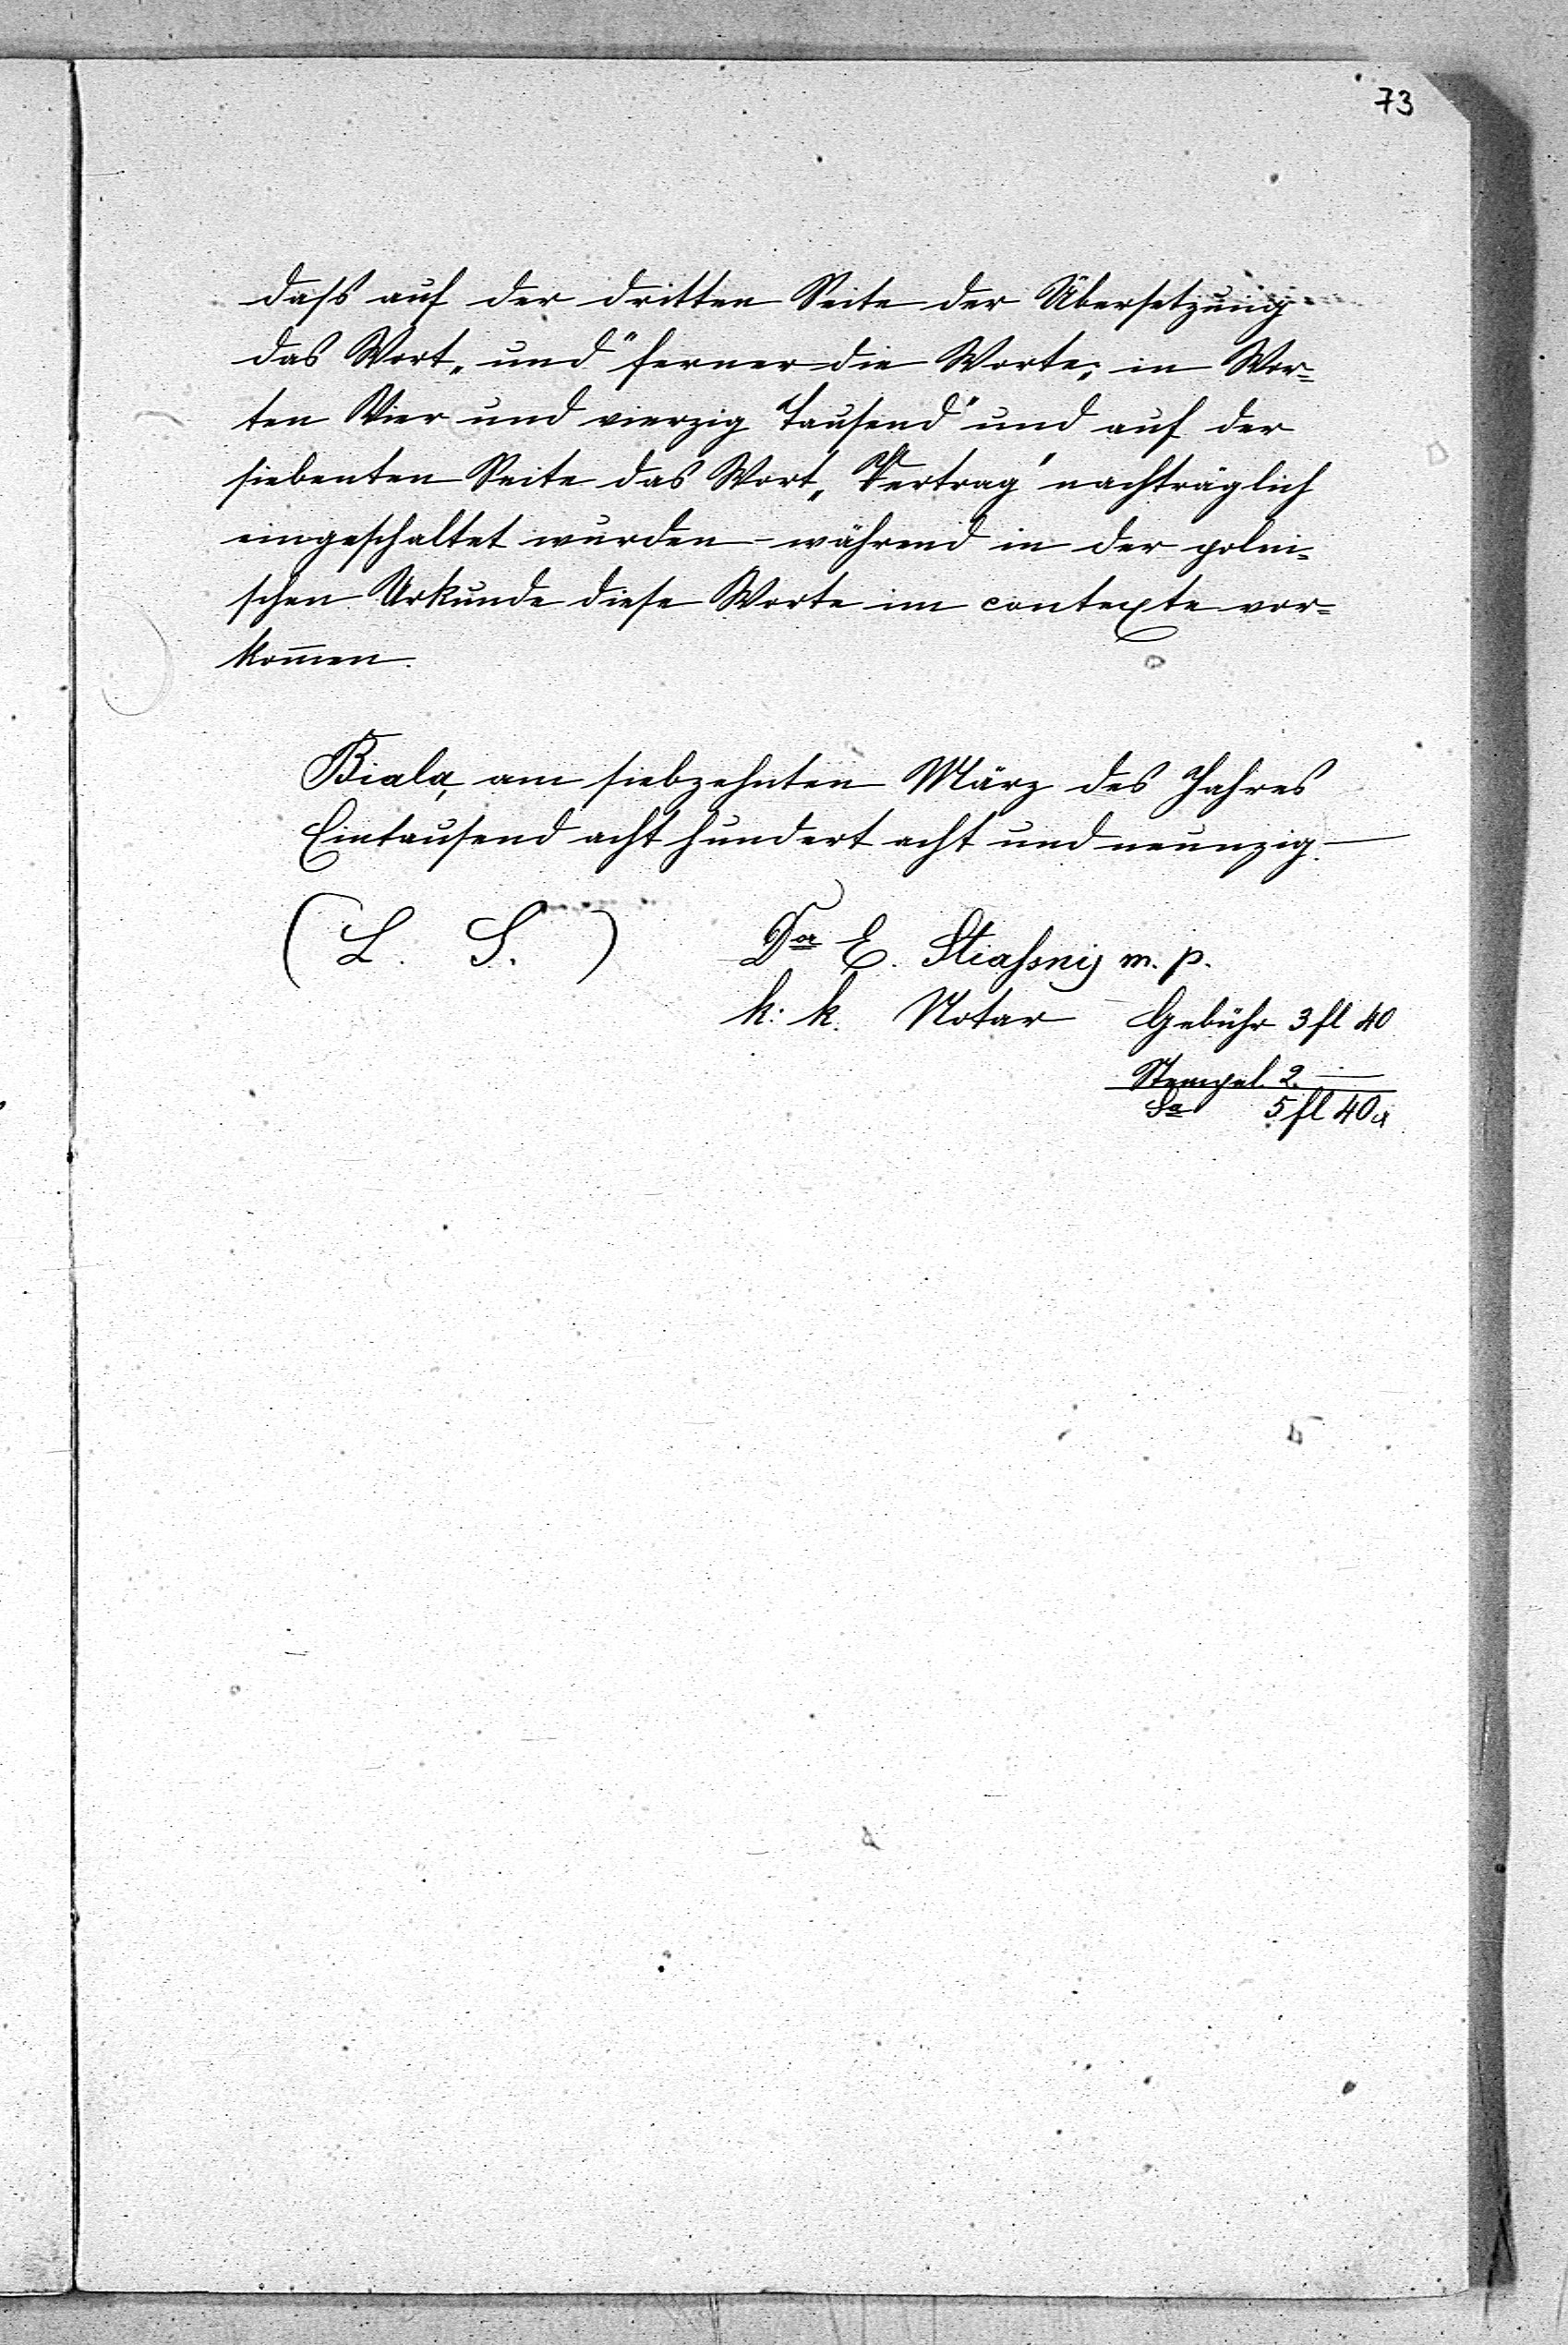 73
dass auf der dritten Seite der Übersetzung
das Wort „und" ferner die Worte: in Wor=
ten Vier und vierzig Tausend" und auf der
siebenten Seite das Wort „Vertrag" nachträglich
eingeschaltet wurden - während in der polni=
schen Urkunde diese Worte im contexte vor=
kom̄en.
Biala, am siebzehnten März des Jahres
Eintausend acht hundert acht und neunzig. —
(L. S.) Dr E. Stiassny m. p.
k: k. Notar Gebühr 3 fl 40
Stempel. 2. —
Sa 5 fl 40 x